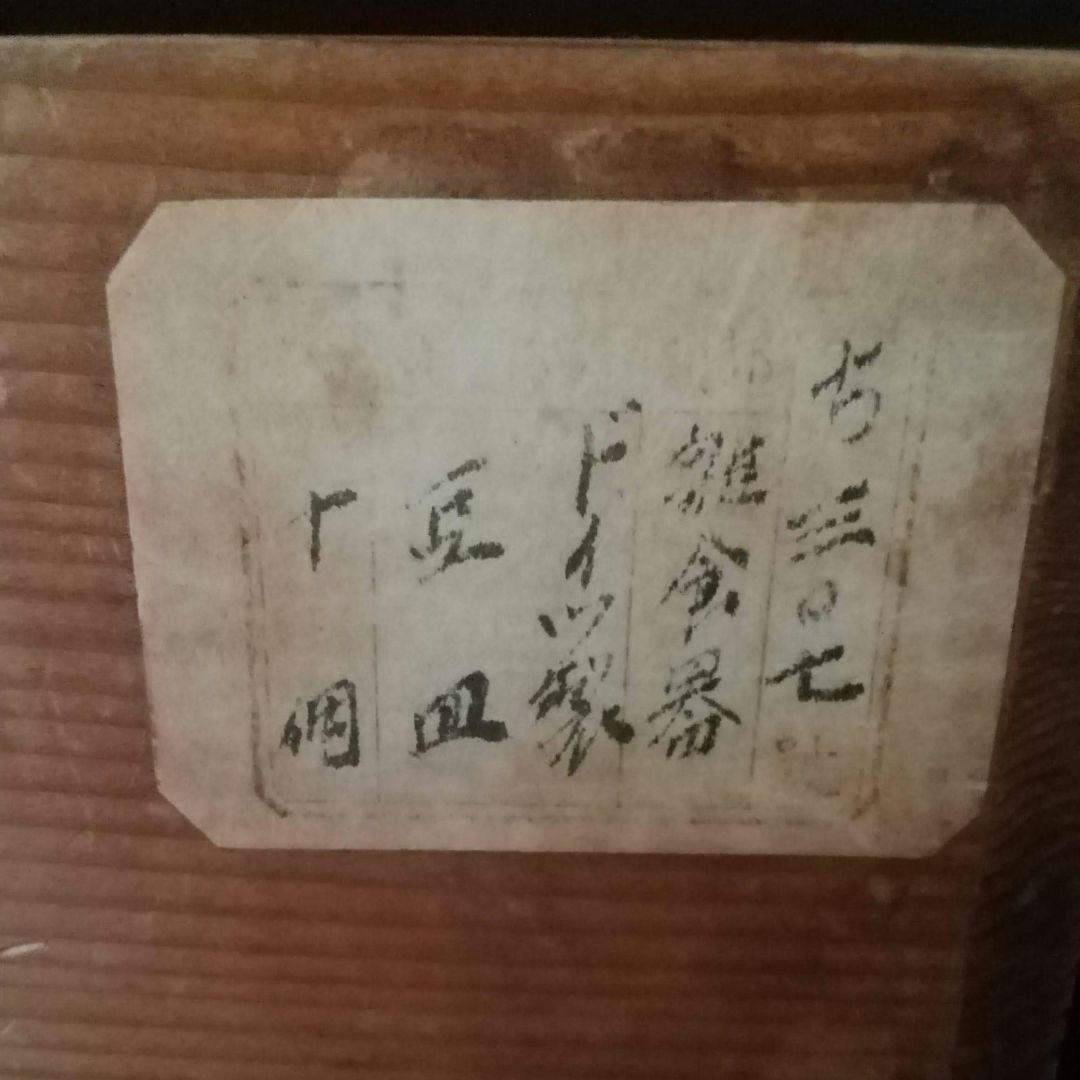 ち三〇七
雑食器
ドイツ製
豆皿
十個